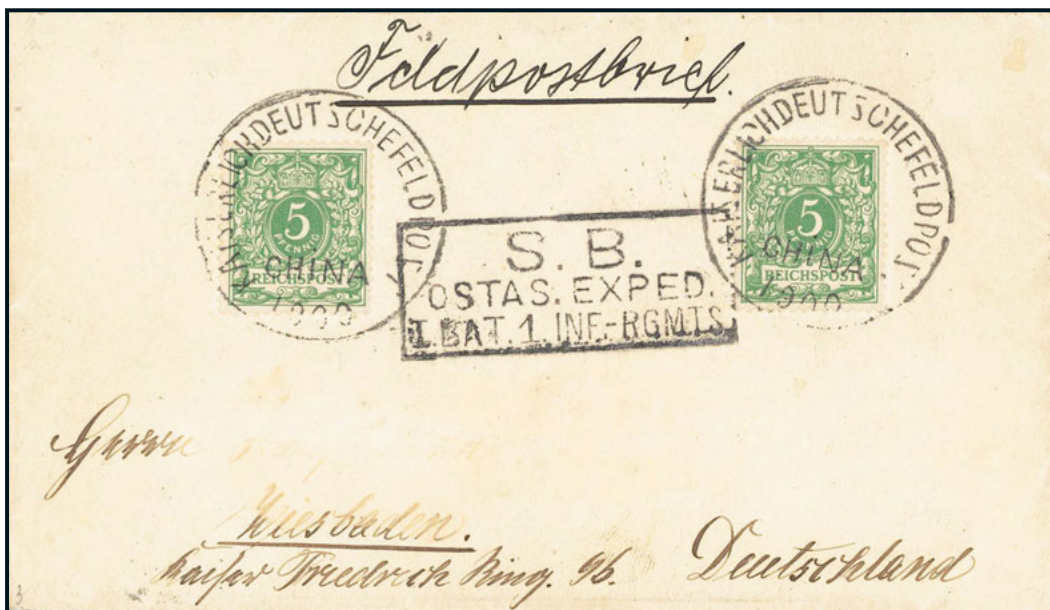 Feldpostbrief.
KAISERLICHDEUTSCHEFELDPOST
5
PFENNIG
REICHSPOST
CHINA
1900
S. B.
OSTAS. EXPED.
I. BAT. 1. INF.-RGMTS.
KAISERLICHDEUTSCHEFELDPOST
5
PFENNIG
REICHSPOST
CHINA
1900
Herrn
Wiesbaden.
Kaiser Friedrich Ring. 96.
Deutschland
3